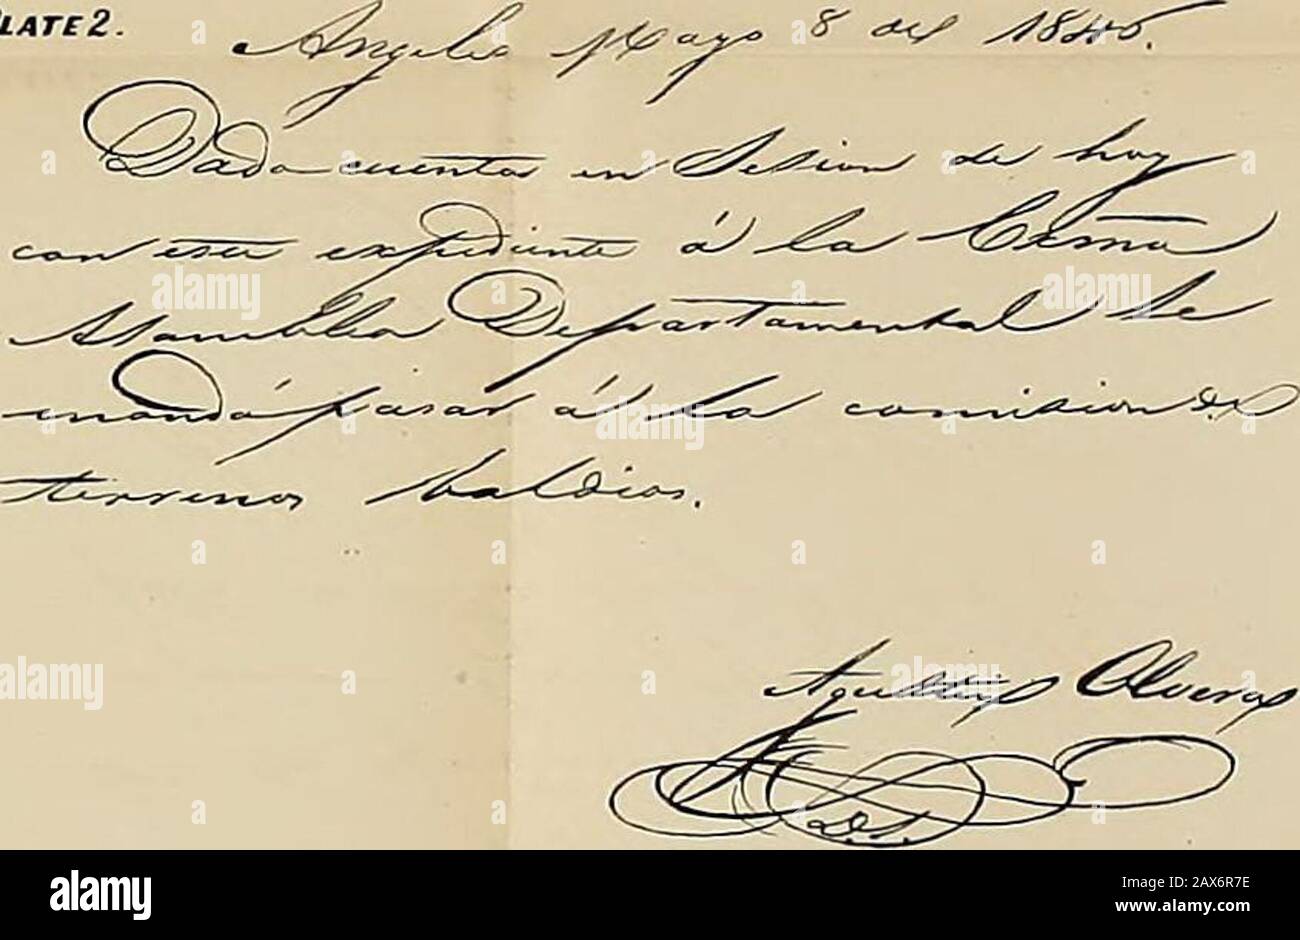 LATE 2.
Angeles Mayo 8 del 1846.
Dada cuenta en Sesion de hoy
con este expediente á la Exma
Asamblea Departamental se
mandó pasar á la comision de
terrenos baldios.
Agustin Olvera
D.S.
alamy
Image ID: 2AX6R7E
www.alamy.com